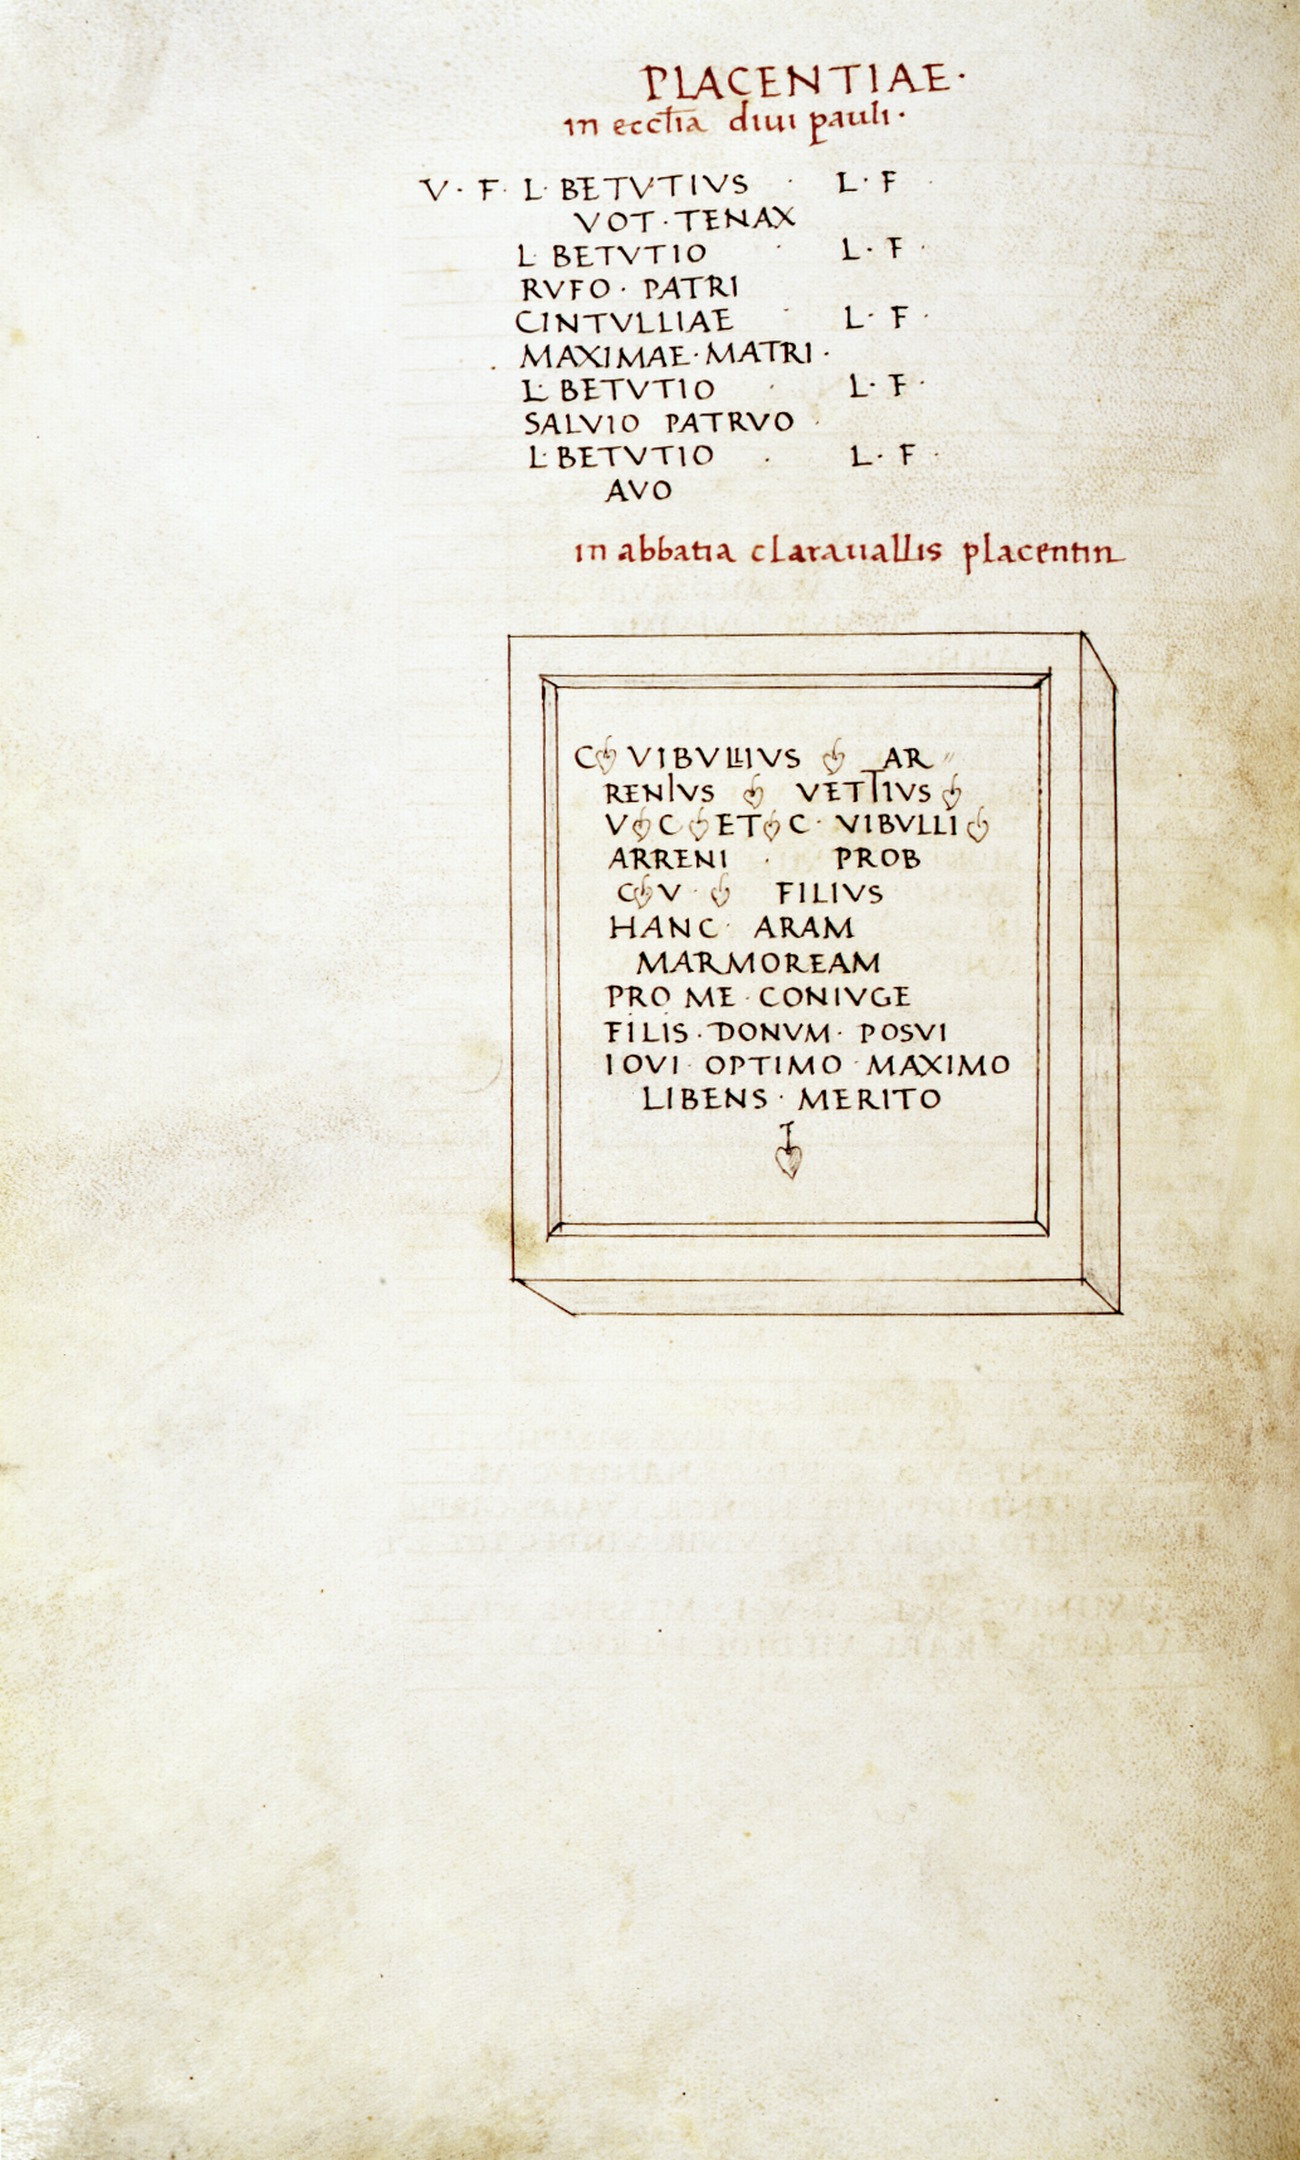 PLACENTIAE·
in eccl̄ia diui pauli·
V· F· L· BETVTIVS · L· F ·
VOT·TENAX
L· BETVTIO · L· F ·
RVFO· PATRI
CINTVLLIAE · L· F ·
· MAXIMAE·MATRI·
L· BETVTIO · L· F ·
SALVIO PATRVO ·
L·BETVTIO · L· F ·
AVO
in abbatia clarauallis placentin
C❧ VIBVLLIVS ❧ AR〃
RENIVS ❧ VETTIVS❧
V❧C❧ET❧C· VIBVLLI❧
ARRENI · PROB
C❧V · ❧ FILIVS
HANC· ARAM
MARMOREAM
PRO ME · CONIVGE
FILIS·DONVM· POSVI
IOVI· OPTIMO·MAXIMO
LIBENS · MERITO